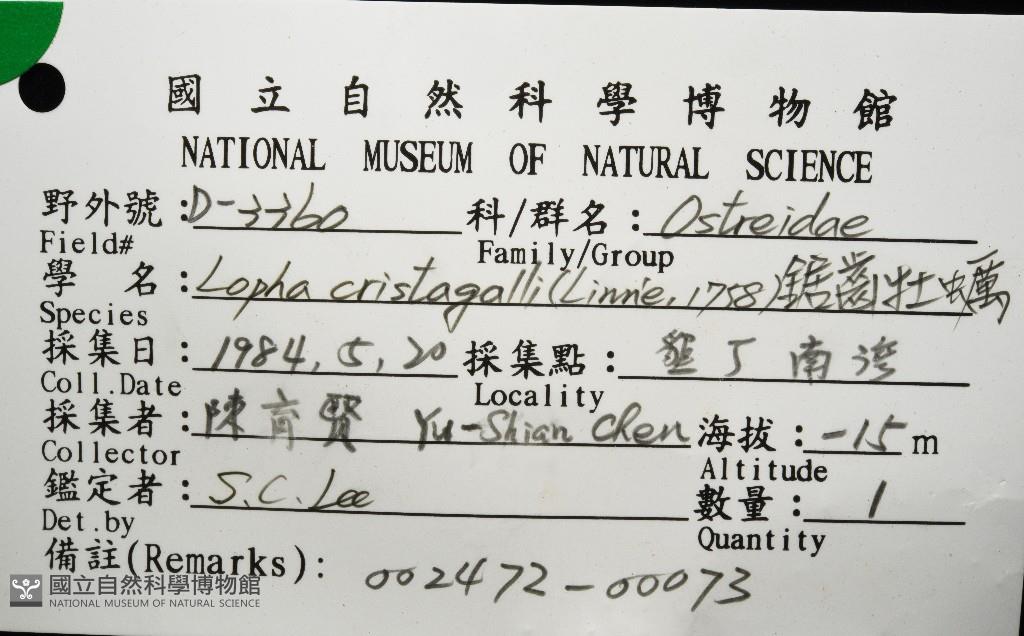 國立自然科學博物館
NATIONAL MUSEUM OF NATURAL SCIENCE
野外號：D-3360 科/群名：Ostreidae
Field# Family/Group
學 名：Lopha cristagalli (Linnie, 1758) 鋸齒牡蠣
Species
採集日：1984, 5, 20 採集點：墾丁南湾
Coll.Date Locality
採集者：陳育賢 Yu-Shian Chen 海拔：-15 m
Collector Altitude
鑑定者：S.C. Lee 數量：1
Det.by Quantity
備註(Remarks): 002472-00073
國立自然科學博物館
NATIONAL MUSEUM OF NATURAL SCIENCE